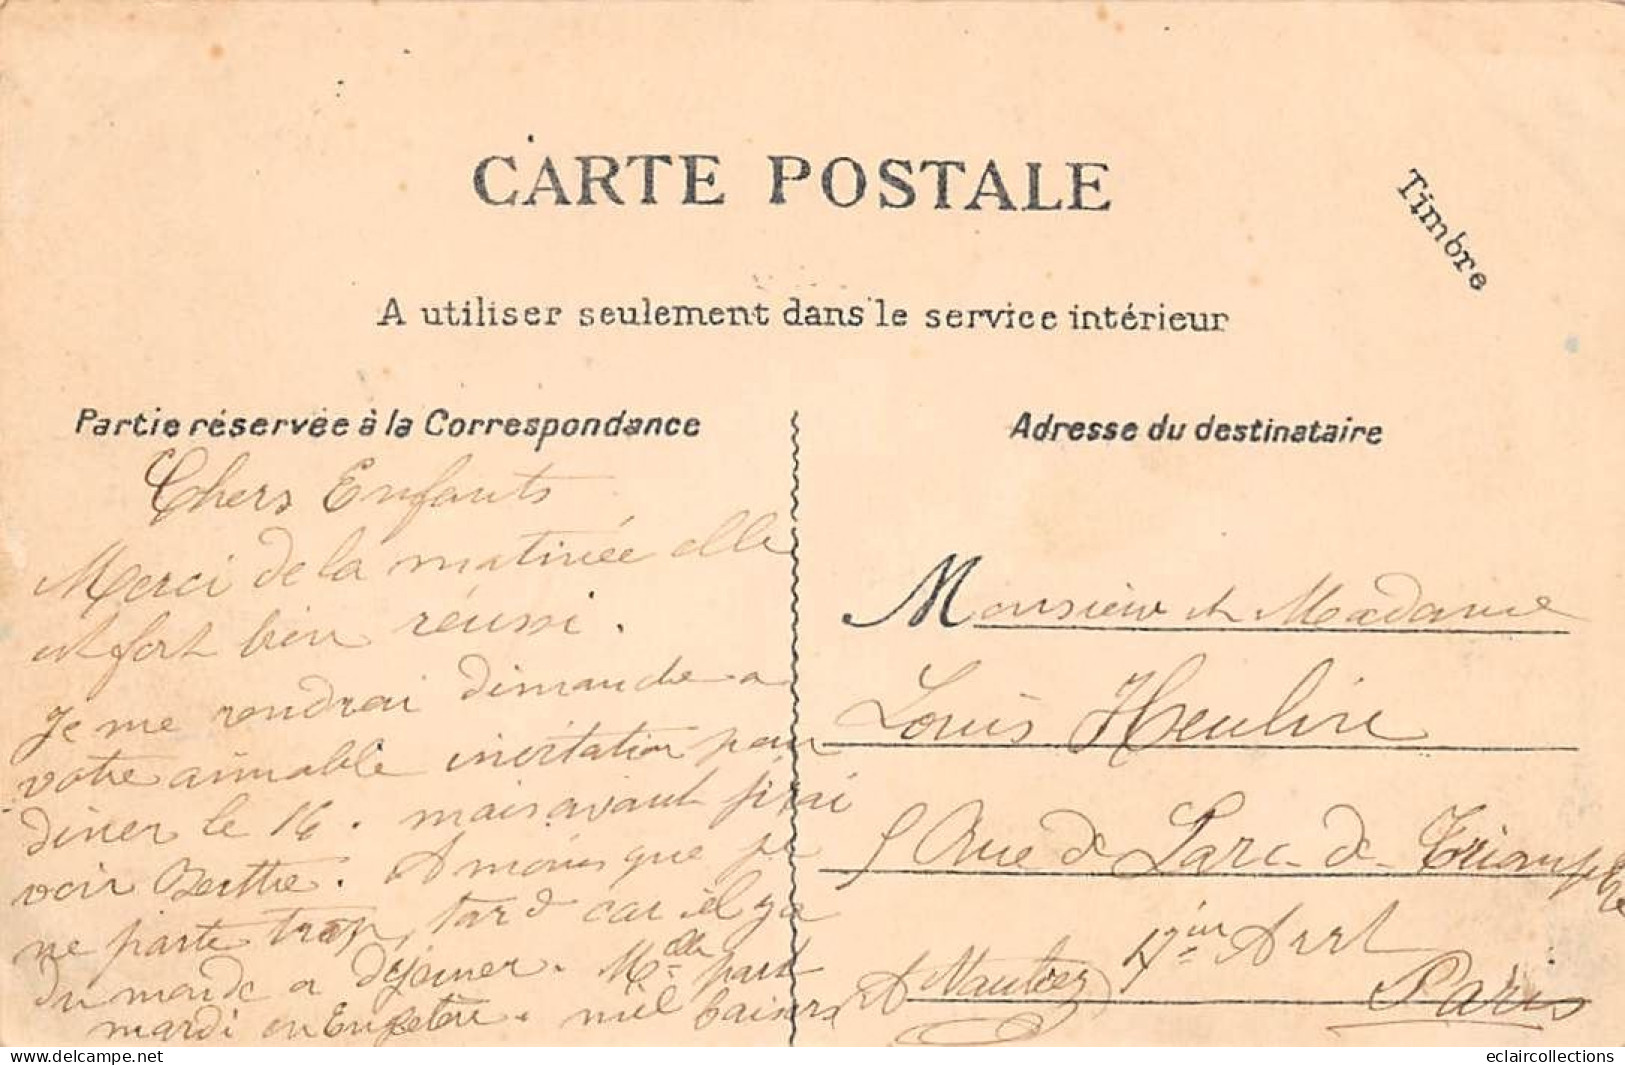 CARTE POSTALE
Timbre
A utiliser seulement dans le service intérieur
Partie réservée à la Correspondance
Chers Enfants
Merci de la matinée elle
est fort bien réussi.
Je me rendrai dimanche a
votre aimable invitation pour
diner le 16. mais avant j'irai
voir Berthe. A moins que je
ne parte trop tard car il y a
du monde a déjeuner. Melle part
mardi en
mil baisers
Adresse du destinataire
Monsieur et Madame
Louis Heulin
5 Rue de Larc de Triomphe
17in Arrt
Paris
A Nautier
eclaircollections